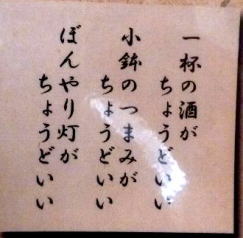 一杯の酒が
ちょうどいい
小鉢のつまみが
ちょうどいい
ぼんやり灯が
ちょうどいい